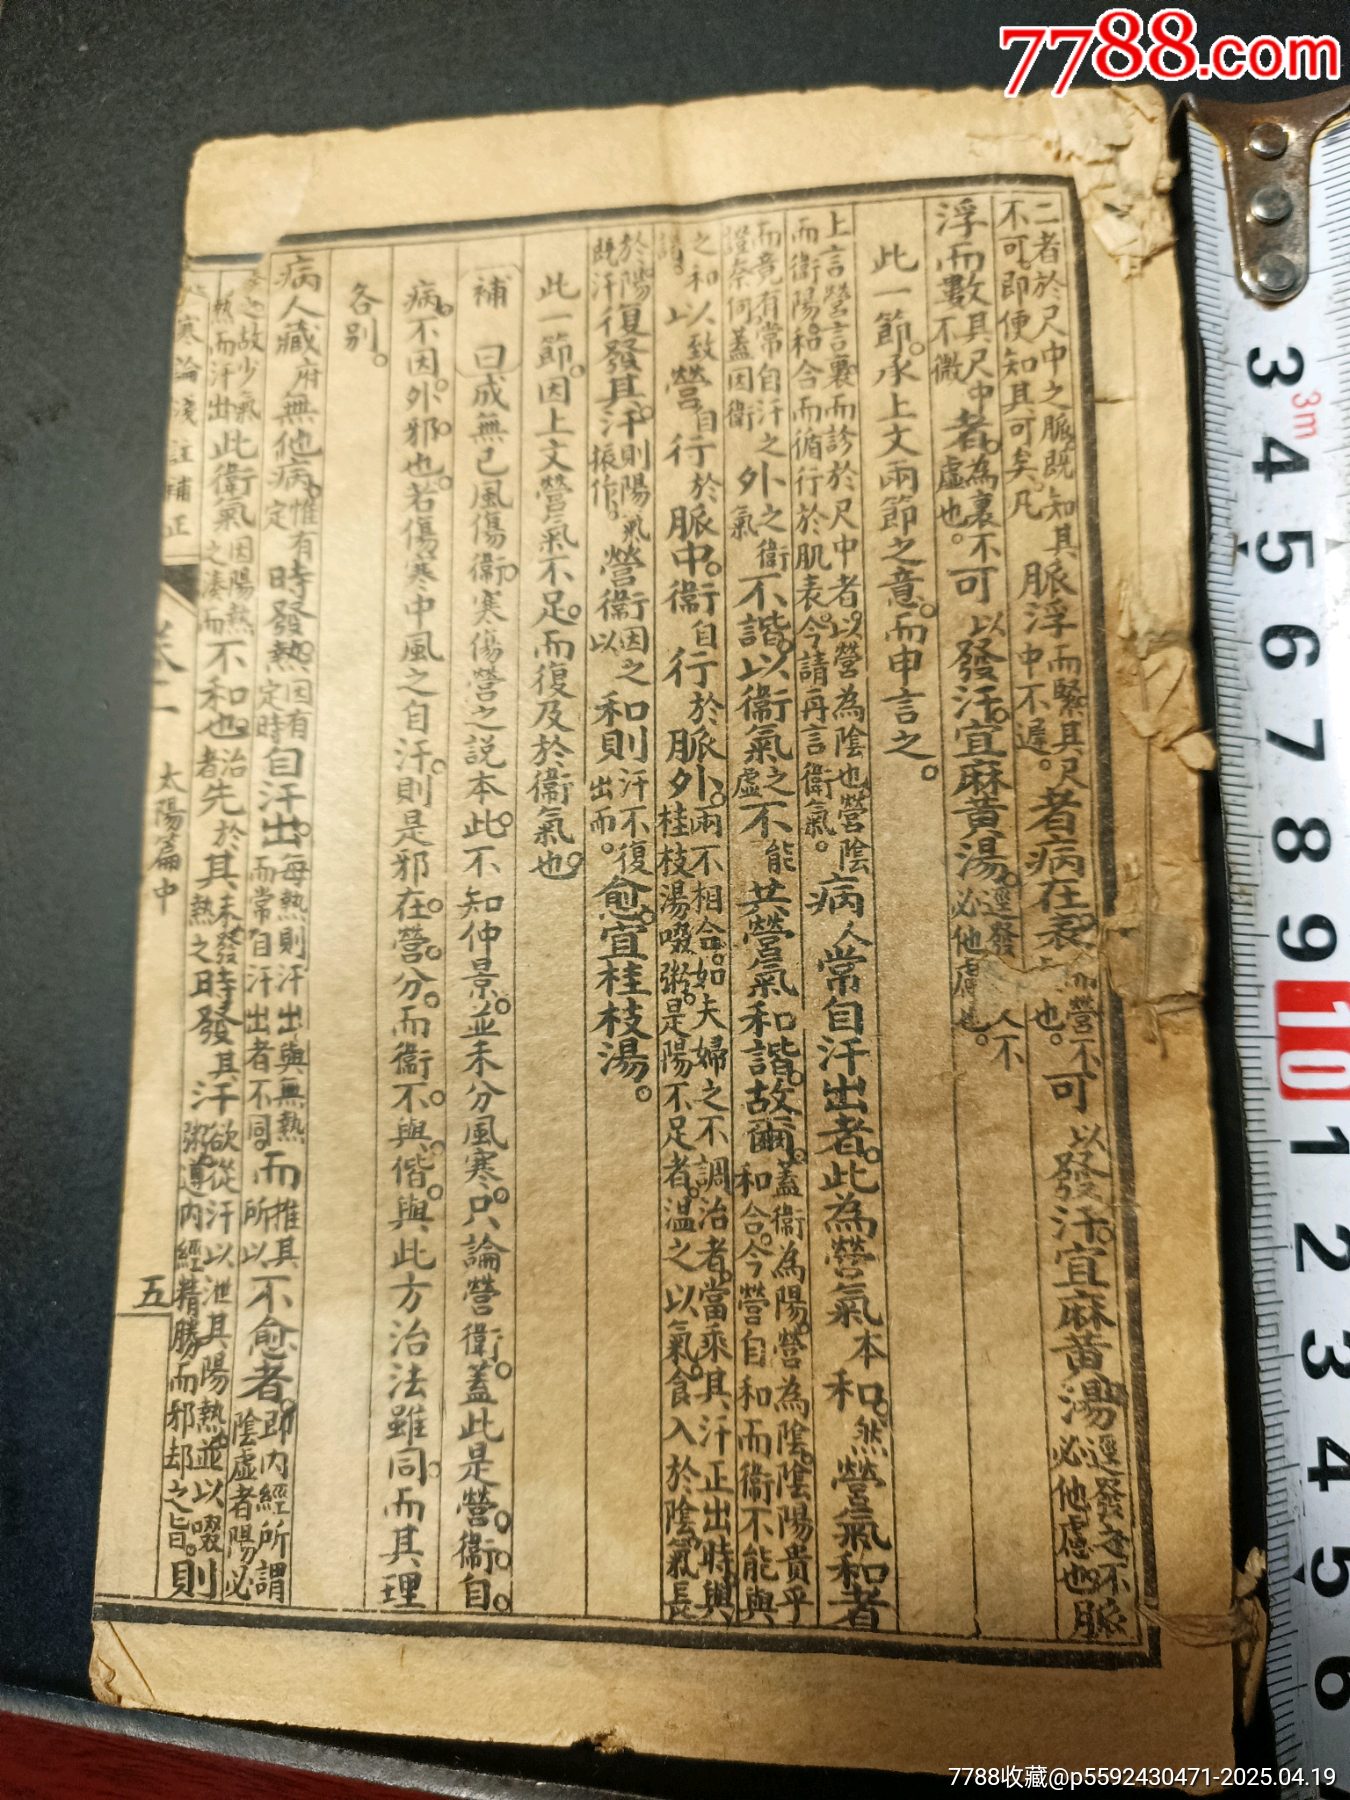 7788.com
二者於尺中之脈既知其脈浮而緊其尺者病在表而營不可以發汗宜麻黃湯逕發之不
不可即便知其可矣凡中不遲。也。必他慮也脈
浮而數其尺中者為裏不可以發汗宜麻黃湯逕發人不
不微虛也。必他慮也。
此一節承上文兩節之意。而申言之。
上言營言裏而診於尺中者以營為陰也營陰病人常自汗出者。此為營氣本和。然營氣和者
而衛陽和合而循行於肌表。今請再言衛氣。
而竟有常自汗之外之衛不諧。以衛氣之不能共營氣和諧故爾。蓋衛為陽。營為陰。陰陽貴乎
證奈何蓋因衛氣虛和合。今營自和而衛不能與
之和以致營自行於脈中。衛自行於脈外。兩不相合。如夫婦之不調治者當乘其汗正出時與
桂枝湯啜粥。是陽不足者溫之以氣。食入於陰氣長
於陽復發其汗。則陽氣營衛因之和則汗不復愈。宜桂枝湯。
既汗振作。以出而。
此一節。因上文營氣不足。而復及於衛氣也。
補 曰成無己風傷衛。寒傷營之說本此。不知仲景。並未分風寒。只論營衛。蓋此是營。衛。自。
病。不因。外。邪。也。若傷寒中風之自汗。則是邪。在。營。分。而衛。不。與。偕。與此方治法雖同。而其理
各別。
病人藏府無他病惟有時發熱。因有自汗出。每熱則汗出與無熱而推其不愈者。即內經所謂
定定時而常自汗出者不同所以陰虛者陽必
湊之故少氣此衛氣因陽熱不和也治先於其未發時發其汗欲從汗以泄其陽熱並以啜則
熱而汗出之湊而者熱之粥遵內經精勝而邪却之旨。
寒論淺註補正
太陽篇中
五
3m
3 4 5 6 7 8 9 10 1 2 3 4 5 6
7788收藏@p5592430471-2025.04.19